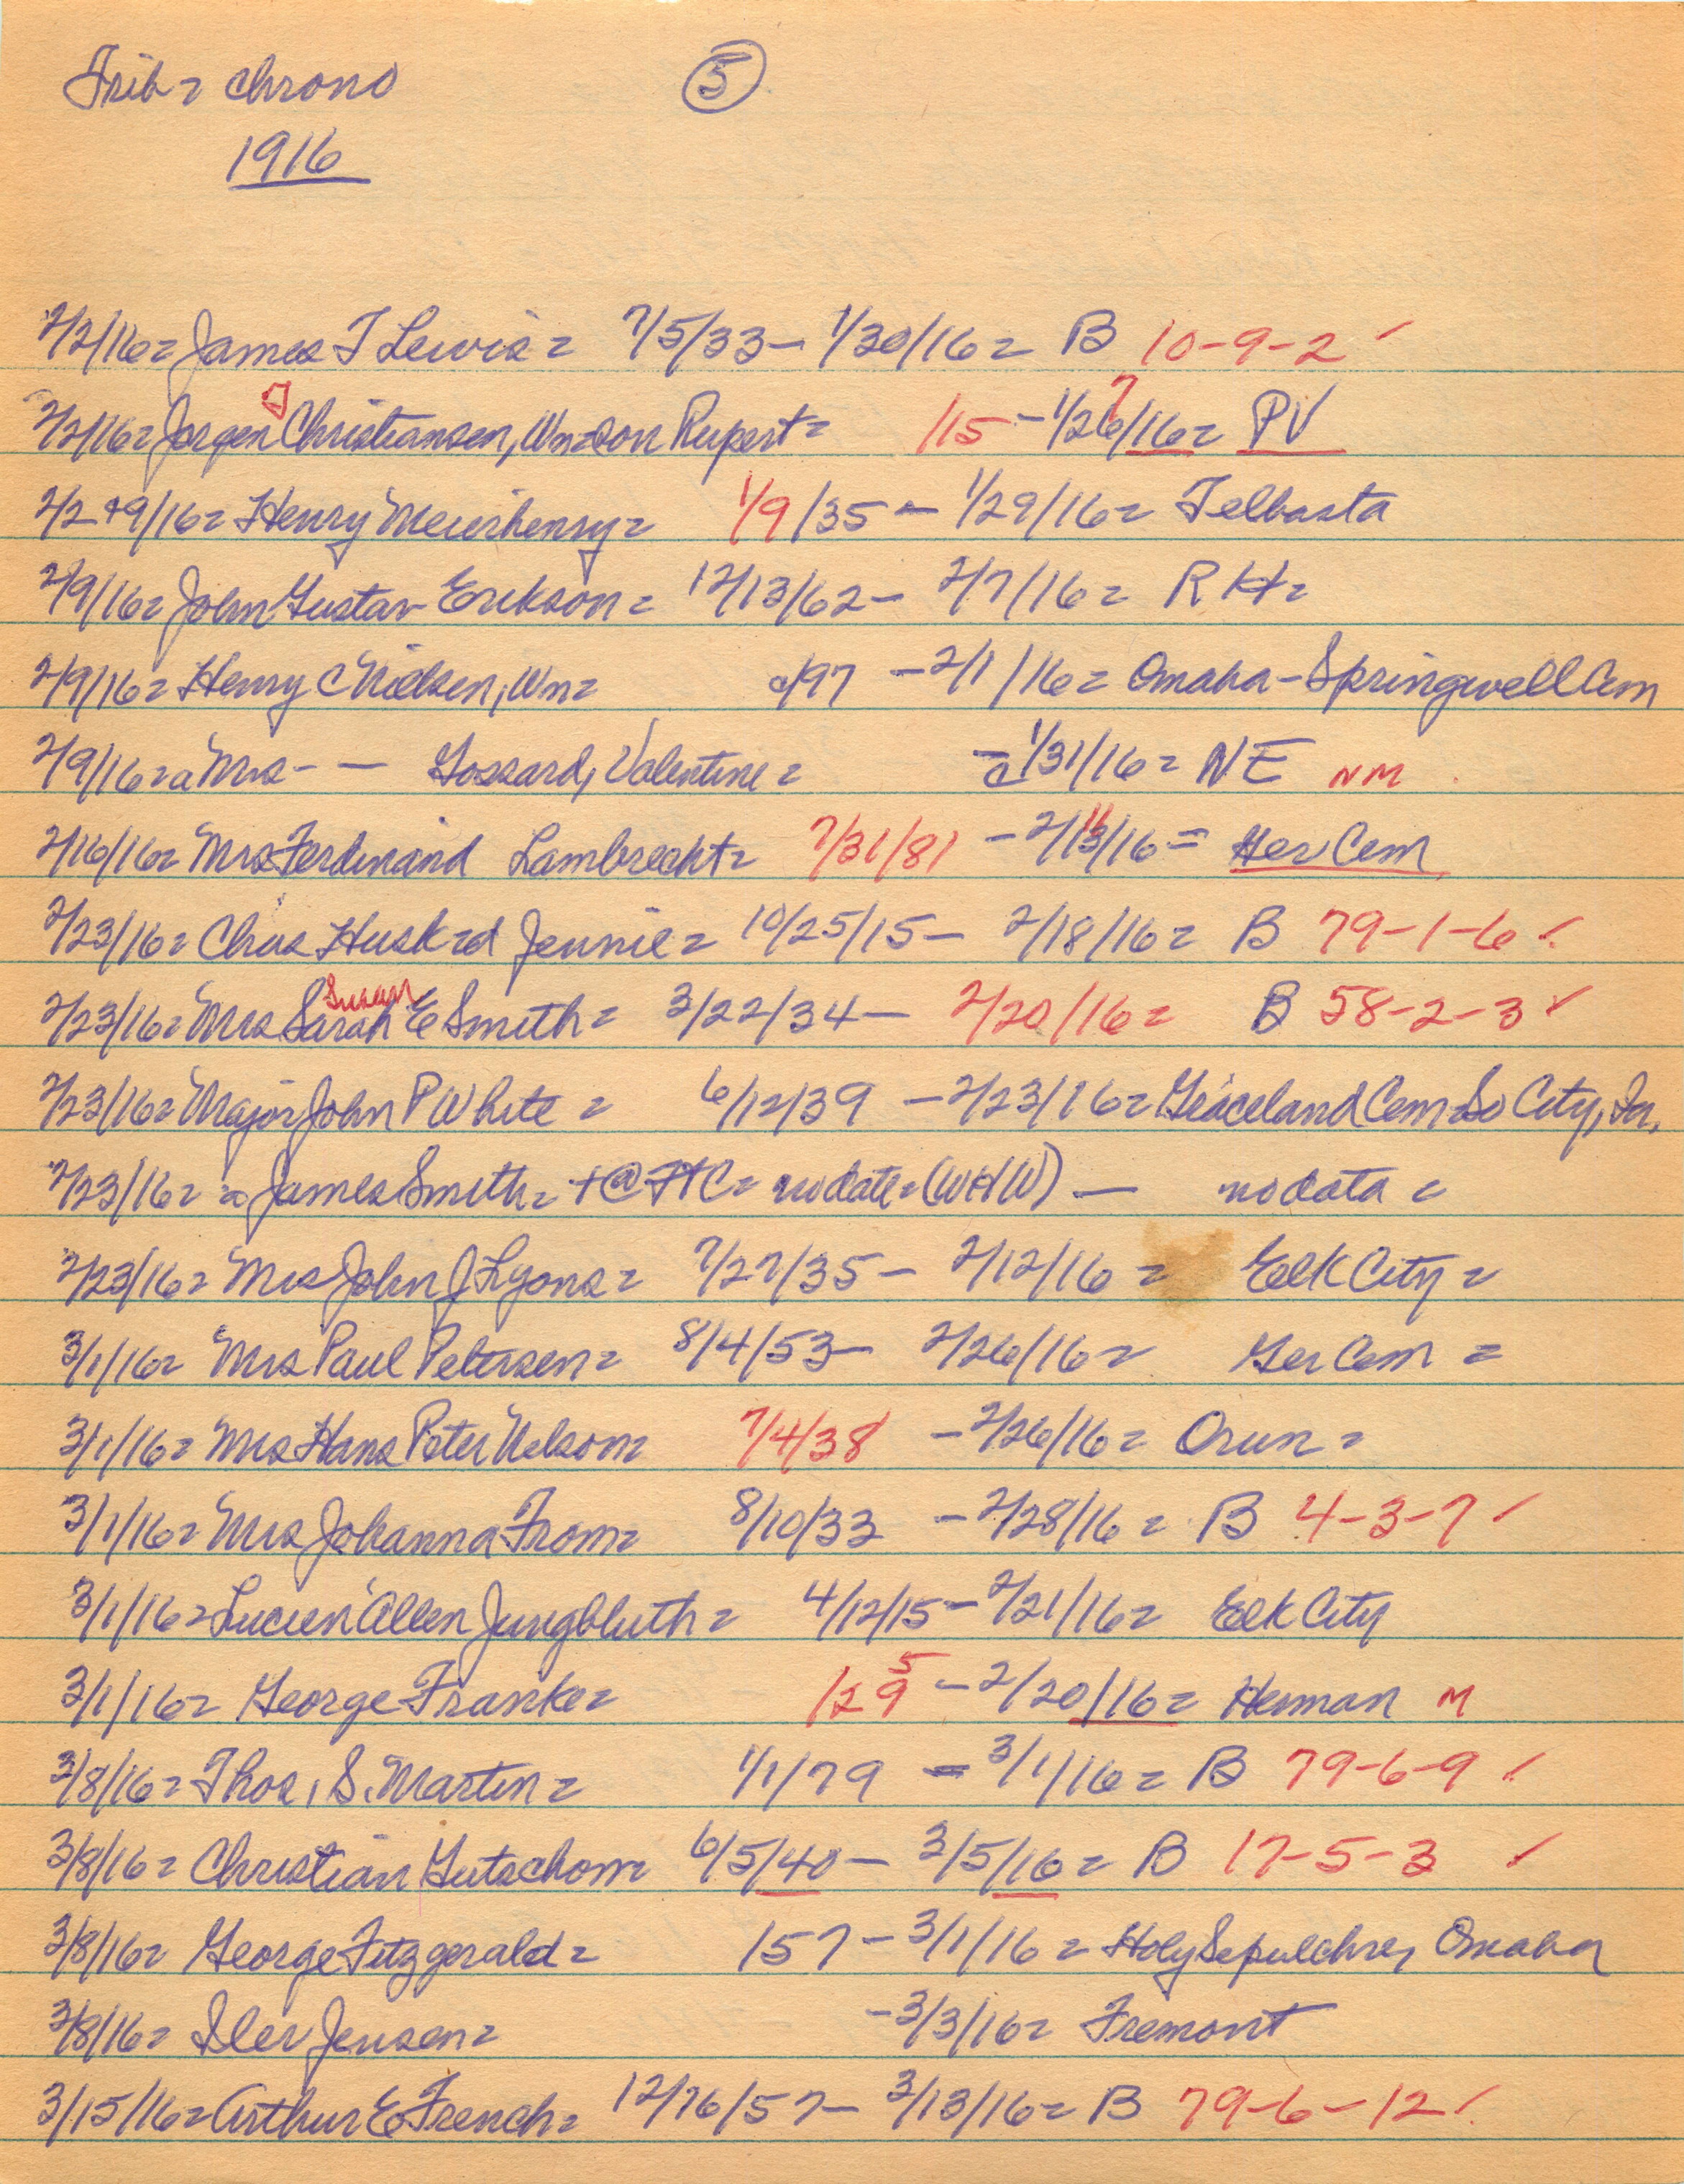 Trib = chrono ⑤
1916
2/2/16= James T Lewis = 7/5/33 - 1/30/16 = B 10-9-2 ✓
2/2/16= Jorgen Christiansen, Wm=son Rupert = /15 - 1/26/16 = PV
2/2 +9/16= Henry Meierhenry = 1/9/35 - 1/29/16 = Telbasta
2/9/16= John Gustav Erikson = 12/13/62 - 2/7/16 = R H =
2/9/16= Henry C Nielsen, Wm= c/97 - 2/1/16 = Omaha - Springwell Cem
2/9/16= a Mrs - — Gossard, Valentine = - c 1/31/16 = NE NM
2/16/16= Mrs Ferdinand Lambrecht = 7/31/81 - 2/13/16 = Her Cem
2/23/16= Chas Husk =d Jennie = 10/25/15 - 2/18/16 = B 79-1-6 ✓
Susan
2/23/16= Mrs Sarah E Smith = 3/22/34 - 2/20/16 = B 58-2-3 ✓
2/23/16= Major John P White = 6/12/39 - 2/23/16 = Graceland Cem So City, Ia,
2/23/16= = James Smith = +@ FtC = no date = (WHW) — no data =
2/23/16= Mrs John J Lyons = 7/27/35 - 2/12/16 = Elk City =
3/1/16= Mrs Paul Petersen = 8/4/53 - 2/26/16 = Ger Cem =
3/1/16= Mrs Hans Peter Nelson= 7/4/38 - 2/26/16 = Orum =
3/1/16= Mrs Johanna From= 8/10/33 - 2/28/16 = B 4-3-7 ✓
3/1/16= Lucien Allen Jungbluth = 4/12/15 - 2/21/16 = Elk City
5
3/1/16= George Franke= /29 - 2/20/16 = Herman M
3/8/16= Thos, S. Martin = 1/1/79 - 3/1/16 = B 79-6-9 ✓
3/8/16= Christian Gutschom= 6/5/40 - 3/5/16 = B 17-5-3 ✓
3/8/16= George Fitzgerald = /57 - 3/1/16 = Holy Sepulchre, Omaha
3/8/16= Jensen= - 3/3/16= Fremont
3/15/16= Arthur E French= 12/16/57 - 3/13/16= B 79-6-12 ✓